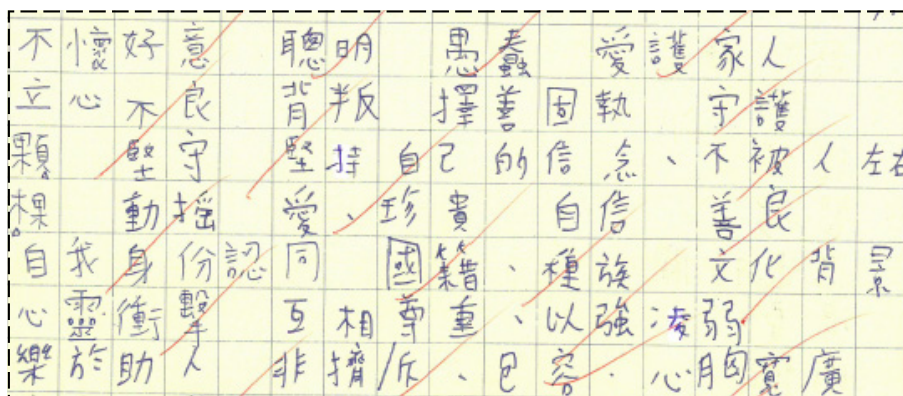 不懷好意 聰明 愚蠢 愛護家人
立心不良 背叛 擇善固執 守護
顆 堅守 堅持自己的信念、不被人左右
棵 動搖 愛、珍貴 自信 善良
自我身份認同 國籍、種族 文化背景
心靈衝擊 互相尊重、以強凌弱
樂於助人 排擠/斥、包容、心胸寬廣